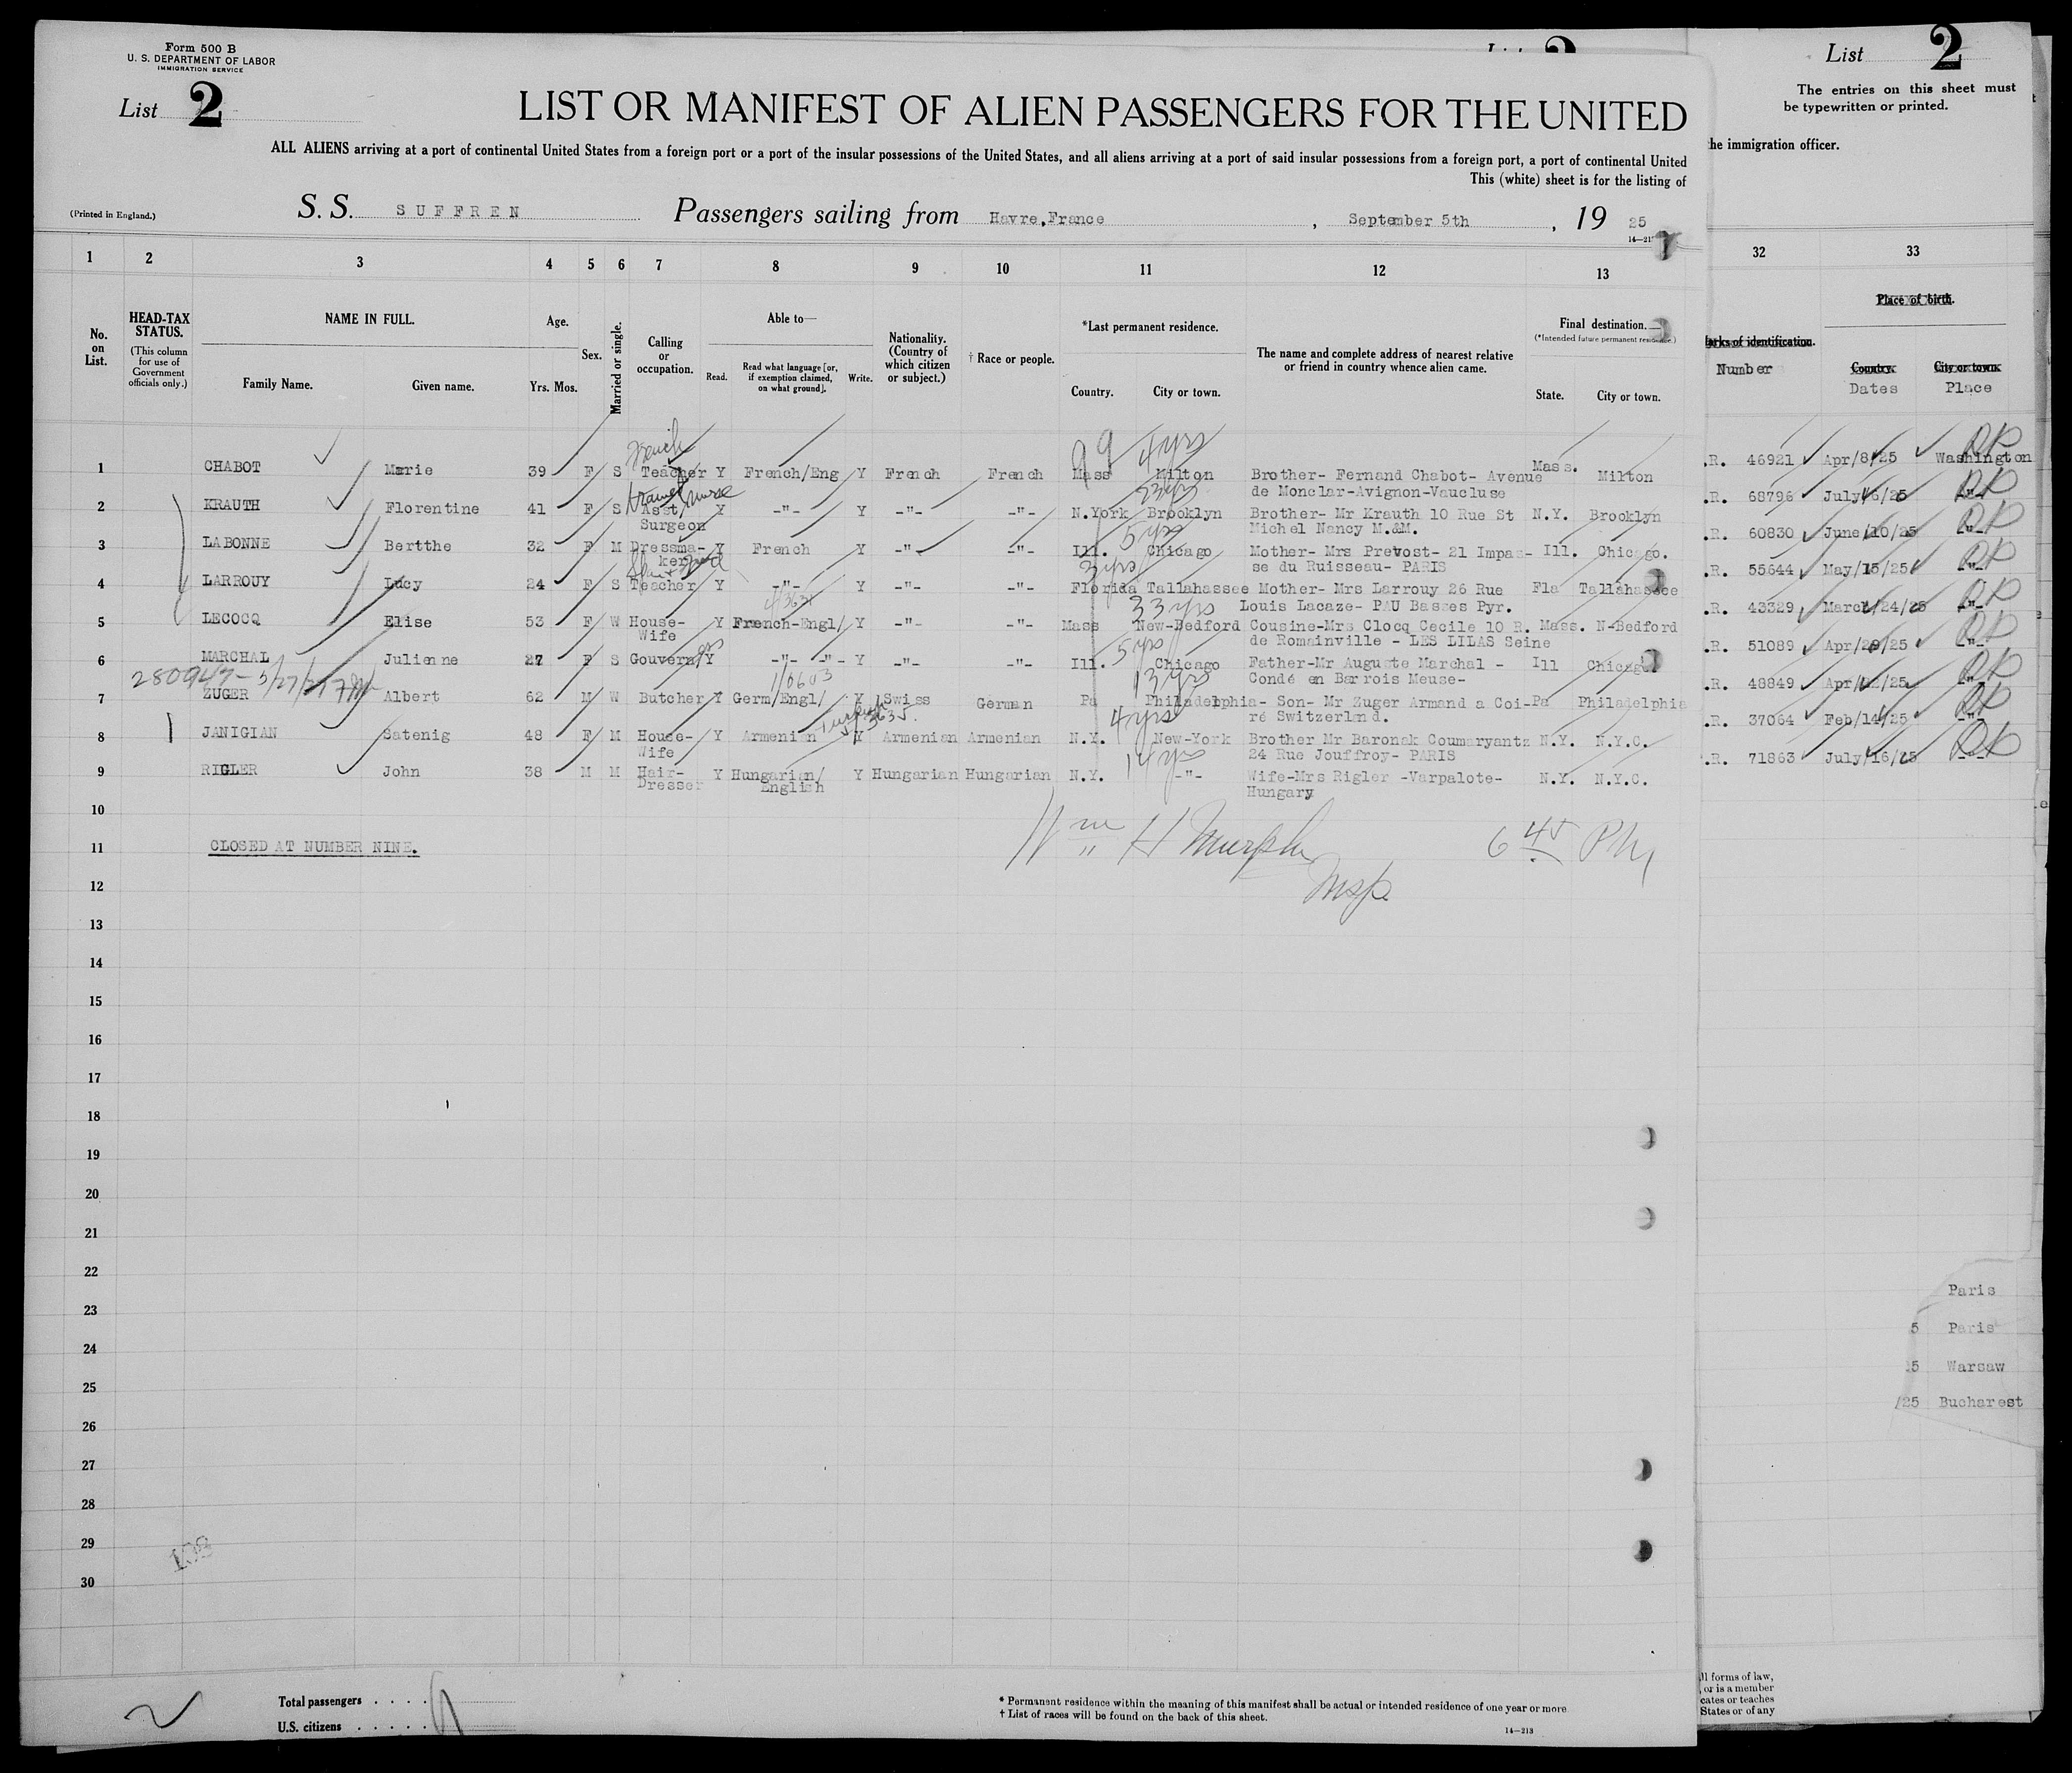 Form 500 B
U. S. DEPARTMENT OF LABOR
IMMIGRATION SERVICE
List 2
LIST OR MANIFEST OF ALIEN PASSENGERS FOR THE UNITED
ALL ALIENS arriving at a port of continental United States from a foreign port or a port of the insular possessions of the United States, and all aliens arriving at a port of said insular possessions from a foreign port, a port of continental United
This (white) sheet is for the listing of
(Printed in England.)
S. S. SUFFREN Passengers sailing from Havre,France , September 5th , 19 25
1 2 3 4 5 6 7 8 9 10 11 12 13
No. on List.
HEAD-TAX STATUS.
(This column for use of Government officials only.)
NAME IN FULL.
Family Name. Given name.
Age.
Yrs. Mos.
Sex.
Married or single.
Calling or occupation.
Able to—
Read. Read what language [or, if exemption claimed, on what ground]. Write.
Nationality. (Country of which citizen or subject.)
† Race or people.
*Last permanent residence.
Country. City or town.
The name and complete address of nearest relative or friend in country whence alien came.
Final destination.
(*Intended future permanent residence.)
State. City or town.
French 4 yrs
1 CHABOT Marie 39 F S Teacher Y French/Eng Y French French Mass Milton Brother- Fernand Chabot- Avenue Mass. Milton
de Monclar-Avignon-Vaucluse
trained nurse 23 yrs
2 KRAUTH Florentine 41 F S Asst/ Y -"- Y -"- -"- N.York Brooklyn Brother- Mr Krauth 10 Rue St N.Y. Brooklyn
Surgeon Michel Nancy M.&M.
5 yrs
3 LABONNE Bertthe 32 F M Dressma- Y French Y -"- -"- Ill. Chicago Mother- Mrs Prevost- 21 Impas- Ill. Chicago.
ker se du Ruisseau- PARIS
3 yrs
4 LARROUY Lucy 24 F S Teacher Y -"- Y -"- -"- Florida Tallahassee Mother- Mrs Larrouy 26 Rue Fla Tallahassee
33 yrs Louis Lacaze- PAU Basses Pyr.
5 LECOCQ Elise 53 F W House- Y French-Engl/ Y -"- -"- Mass New-Bedford Cousine-Mrs Clocq Cecile 10 R. Mass. N-Bedford
Wife de Romainville - LES LILAS Seine
5 yrs
6 MARCHAL Julienne 27 F S Gouverness Y -"- -"- Y -"- -"- Ill. Chicago Father-Mr Auguste Marchal - Ill Chicago
13 yrs Condé en Barrois Meuse-
7 ZUGER Albert 62 M W Butcher Y Germ/Engl/ Y Swiss German Pa Philadelphia- Son- Mr Zuger Armand a Coi- Pa Philadelphia
4 yrs ré Switzerland.
Turkish
8 JANIGIAN Satenig 48 F M House- Y Armenian Y Armenian Armenian N.Y. New-York Brother Mr Baronak Coumaryantz N.Y. N.Y.C.
Wife 24 Rue Jouffroy- PARIS
14 yrs
9 RIGLER John 38 M M Hair- Y Hungarian/ Y Hungarian Hungarian N.Y. -"- Wife-Mrs Rigler -Varpalote- N.Y. N.Y.C.
Dresser English Hungary
10
11 CLOSED AT NUMBER NINE.
Wm H Murphy 6 45 PM
Insp.
12
13
14
15
16
17
18
19
20
21
22
23
24
25
26
27
28
29
30
Total passengers . . . .
U.S. citizens . . . . .
* Permanent residence within the meaning of this manifest shall be actual or intended residence of one year or more
† List of races will be found on the back of this sheet.
14—213
List 2
The entries on this sheet must
be typewritten or printed.
the immigration officer.
32 33
Place of birth.
Marks of identification.
Number
Country. City or town.
Dates Place
.R. 46921 Apr/8/25 Washington
.R. 68796 July/16/25 -"-
.R. 60830 June/10/25 -"-
.R. 55644 May/15/25 -"-
.R. 43329 March/24/25 -"-
.R. 51089 Apr/29/25 -"-
.R. 48849 Apr/22/25 -"-
.R. 37064 Feb/14/25 -"-
.R. 71863 July/16/25 -"-
Paris
5 Paris
25 Warsaw
/25 Bucharest
ll forms of law,
, or is a member
cates or teaches
States or of any